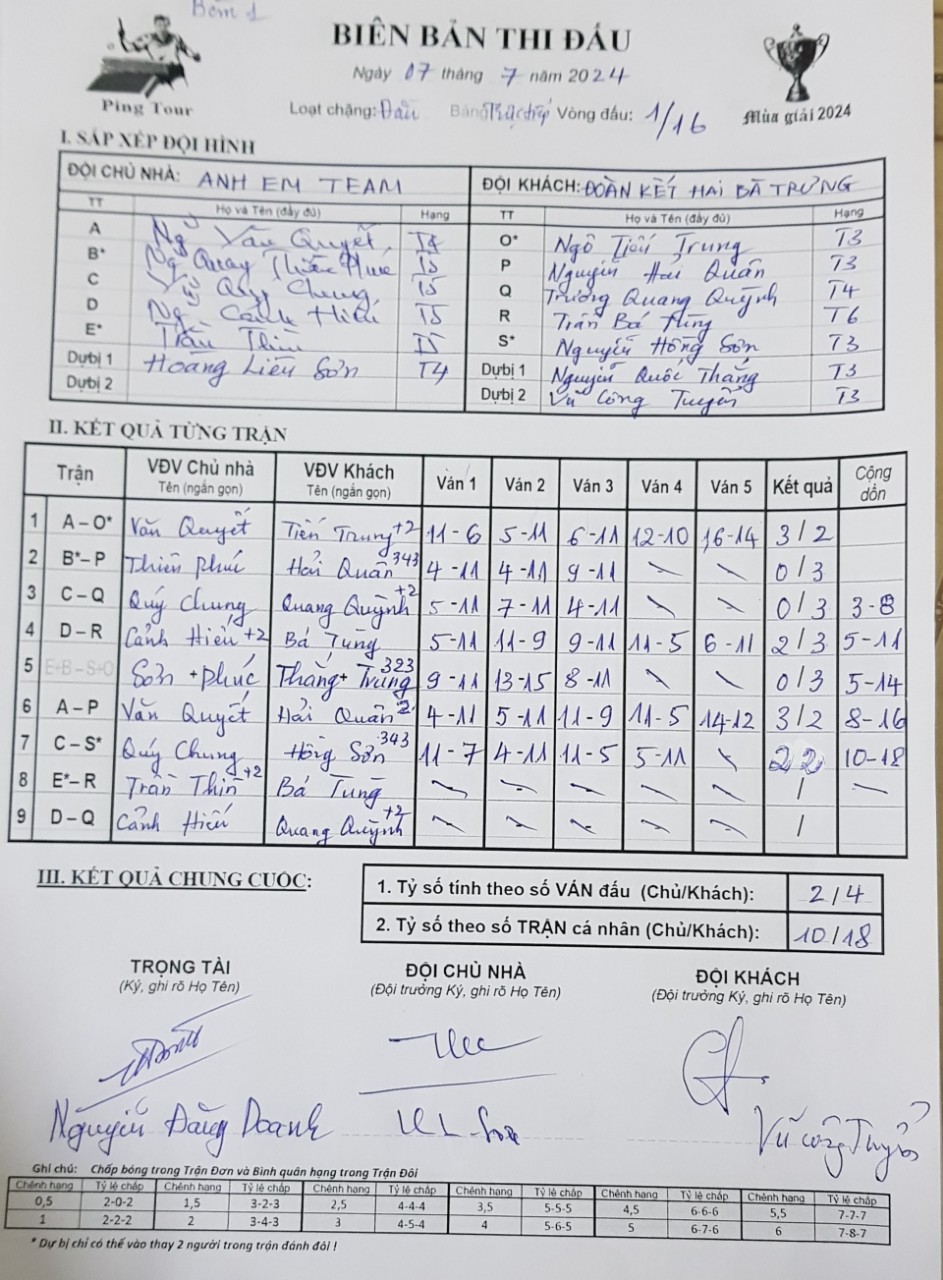 Bàn 1
BIÊN BẢN THI ĐẤU
Ngày 07 tháng 7 năm 2024
Ping Tour
Loạt chặng: Đấu Bảng Vòng đấu: 1/16
Mùa giải 2024
I. SẮP XẾP ĐỘI HÌNH
ĐỘI CHỦ NHÀ: ANH EM TEAM ĐỘI KHÁCH: ĐOÀN KẾT HAI BÀ TRƯNG
TT Họ và Tên (đầy đủ) Hạng TT Họ và Tên (đầy đủ) Hạng
A Ng Văn Quyết O* Ngô Tiến Trung T3
B* Ng Quay Thiên Phúc T5 P Nguyễn Hải Quân T3
C Vũ Quý Chung T5 Q Trương Quang Quỳnh T4
D Ng Cảnh Hiếu T5 R Trần Bá Tùng T6
E* Trần Thìn T5 S* Nguyễn Hồng Sơn T3
Dự bị 1 Hoàng Liên Sơn T4 Dự bị 1 Nguyễn Quốc Thắng T3
Dự bị 2 Dự bị 2 Vũ Công Tuyến T3
II. KẾT QUẢ TỪNG TRẬN
Trận VĐV Chủ nhà VĐV Khách Ván 1 Ván 2 Ván 3 Ván 4 Ván 5 Kết quả Cộng dồn
Tên (ngắn gọn) Tên (ngắn gọn)
1 A – O* Văn Quyết Tiến Trung +2 11-6 5-11 6-11 12-10 16-14 3/2
2 B* – P Thiên Phúc Hải Quân 343 4-11 4-11 9-11 0/3
3 C – Q Quý Chung Quang Quỳnh +2 5-11 7-11 4-11 0/3 3-8
4 D – R Cảnh Hiếu +2 Bá Tùng 5-11 11-9 9-11 11-5 6-11 2/3 5-11
5 E+B – S+O Sơn + Phúc Thắng + Trung 323 9-11 13-15 8-11 0/3 5-14
6 A – P Văn Quyết Hải Quân 2 4-11 5-11 11-9 11-5 14-12 3/2 8-16
7 C – S* Quý Chung Hồng Sơn 343 11-7 4-11 11-5 5-11 2 2 10-18
8 E* – R Trần Thìn +2 Bá Tùng /
9 D – Q Cảnh Hiếu Quang Quỳnh +2 /
III. KẾT QUẢ CHUNG CUỘC:
1. Tỷ số tính theo số VÁN đấu (Chủ/Khách): 2/4
2. Tỷ số theo số TRẬN cá nhân (Chủ/Khách): 10/18
TRỌNG TÀI ĐỘI CHỦ NHÀ ĐỘI KHÁCH
(Ký, ghi rõ Họ Tên) (Đội trưởng Ký, ghi rõ Họ Tên) (Đội trưởng Ký, ghi rõ Họ Tên)
Nguyễn Đăng Doanh Vũ Công Tuyến
Ghi chú: Chấp bóng trong Trận Đơn và Bình quân hạng trong Trận Đôi
Chênh hạng Tỷ lệ chấp Chênh hạng Tỷ lệ chấp Chênh hạng Tỷ lệ chấp Chênh hạng Tỷ lệ chấp Chênh hạng Tỷ lệ chấp Chênh hạng Tỷ lệ chấp
0,5 2-0-2 1,5 3-2-3 2,5 4-4-4 3,5 5-5-5 4,5 6-6-6 5,5 7-7-7
1 2-2-2 2 3-4-3 3 4-5-4 4 5-6-5 5 6-7-6 6 7-8-7
* Dự bị chỉ có thể vào thay 2 người trong trận đánh đôi !